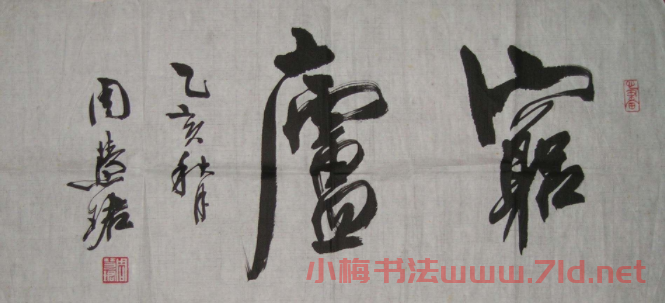 竆廬
乙亥秋月
周慧珺
小梅书法www.7ld.net